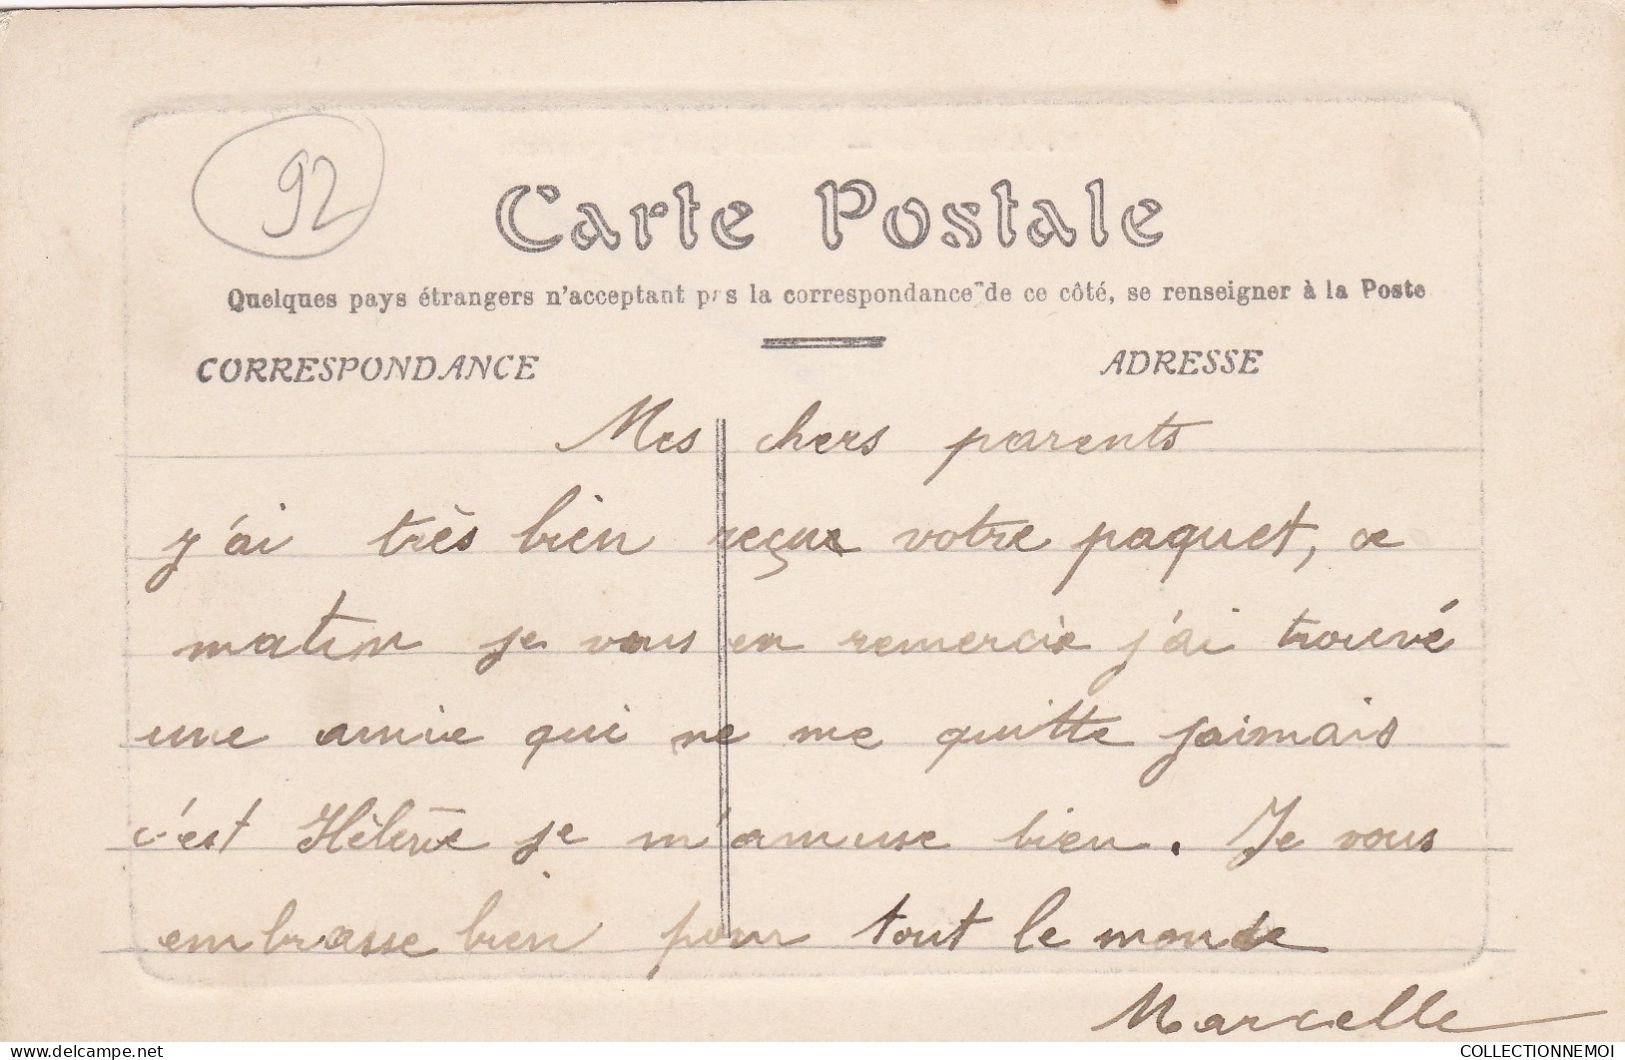 92
Carte Postale
Quelques pays étrangers n'acceptant pas la correspondance de ce côté, se renseigner à la Poste
CORRESPONDANCE
ADRESSE
Mes chers parents
j'ai très bien reçue votre paquet, ce
matin je vous en remercie j'ai trouvé
une amie qui ne me quitte jaimais
c'est Hélène je m'amuse bien. Je vous
embrasse bien pour tout le monde
Marcelle
COLLECTIONNEMOI